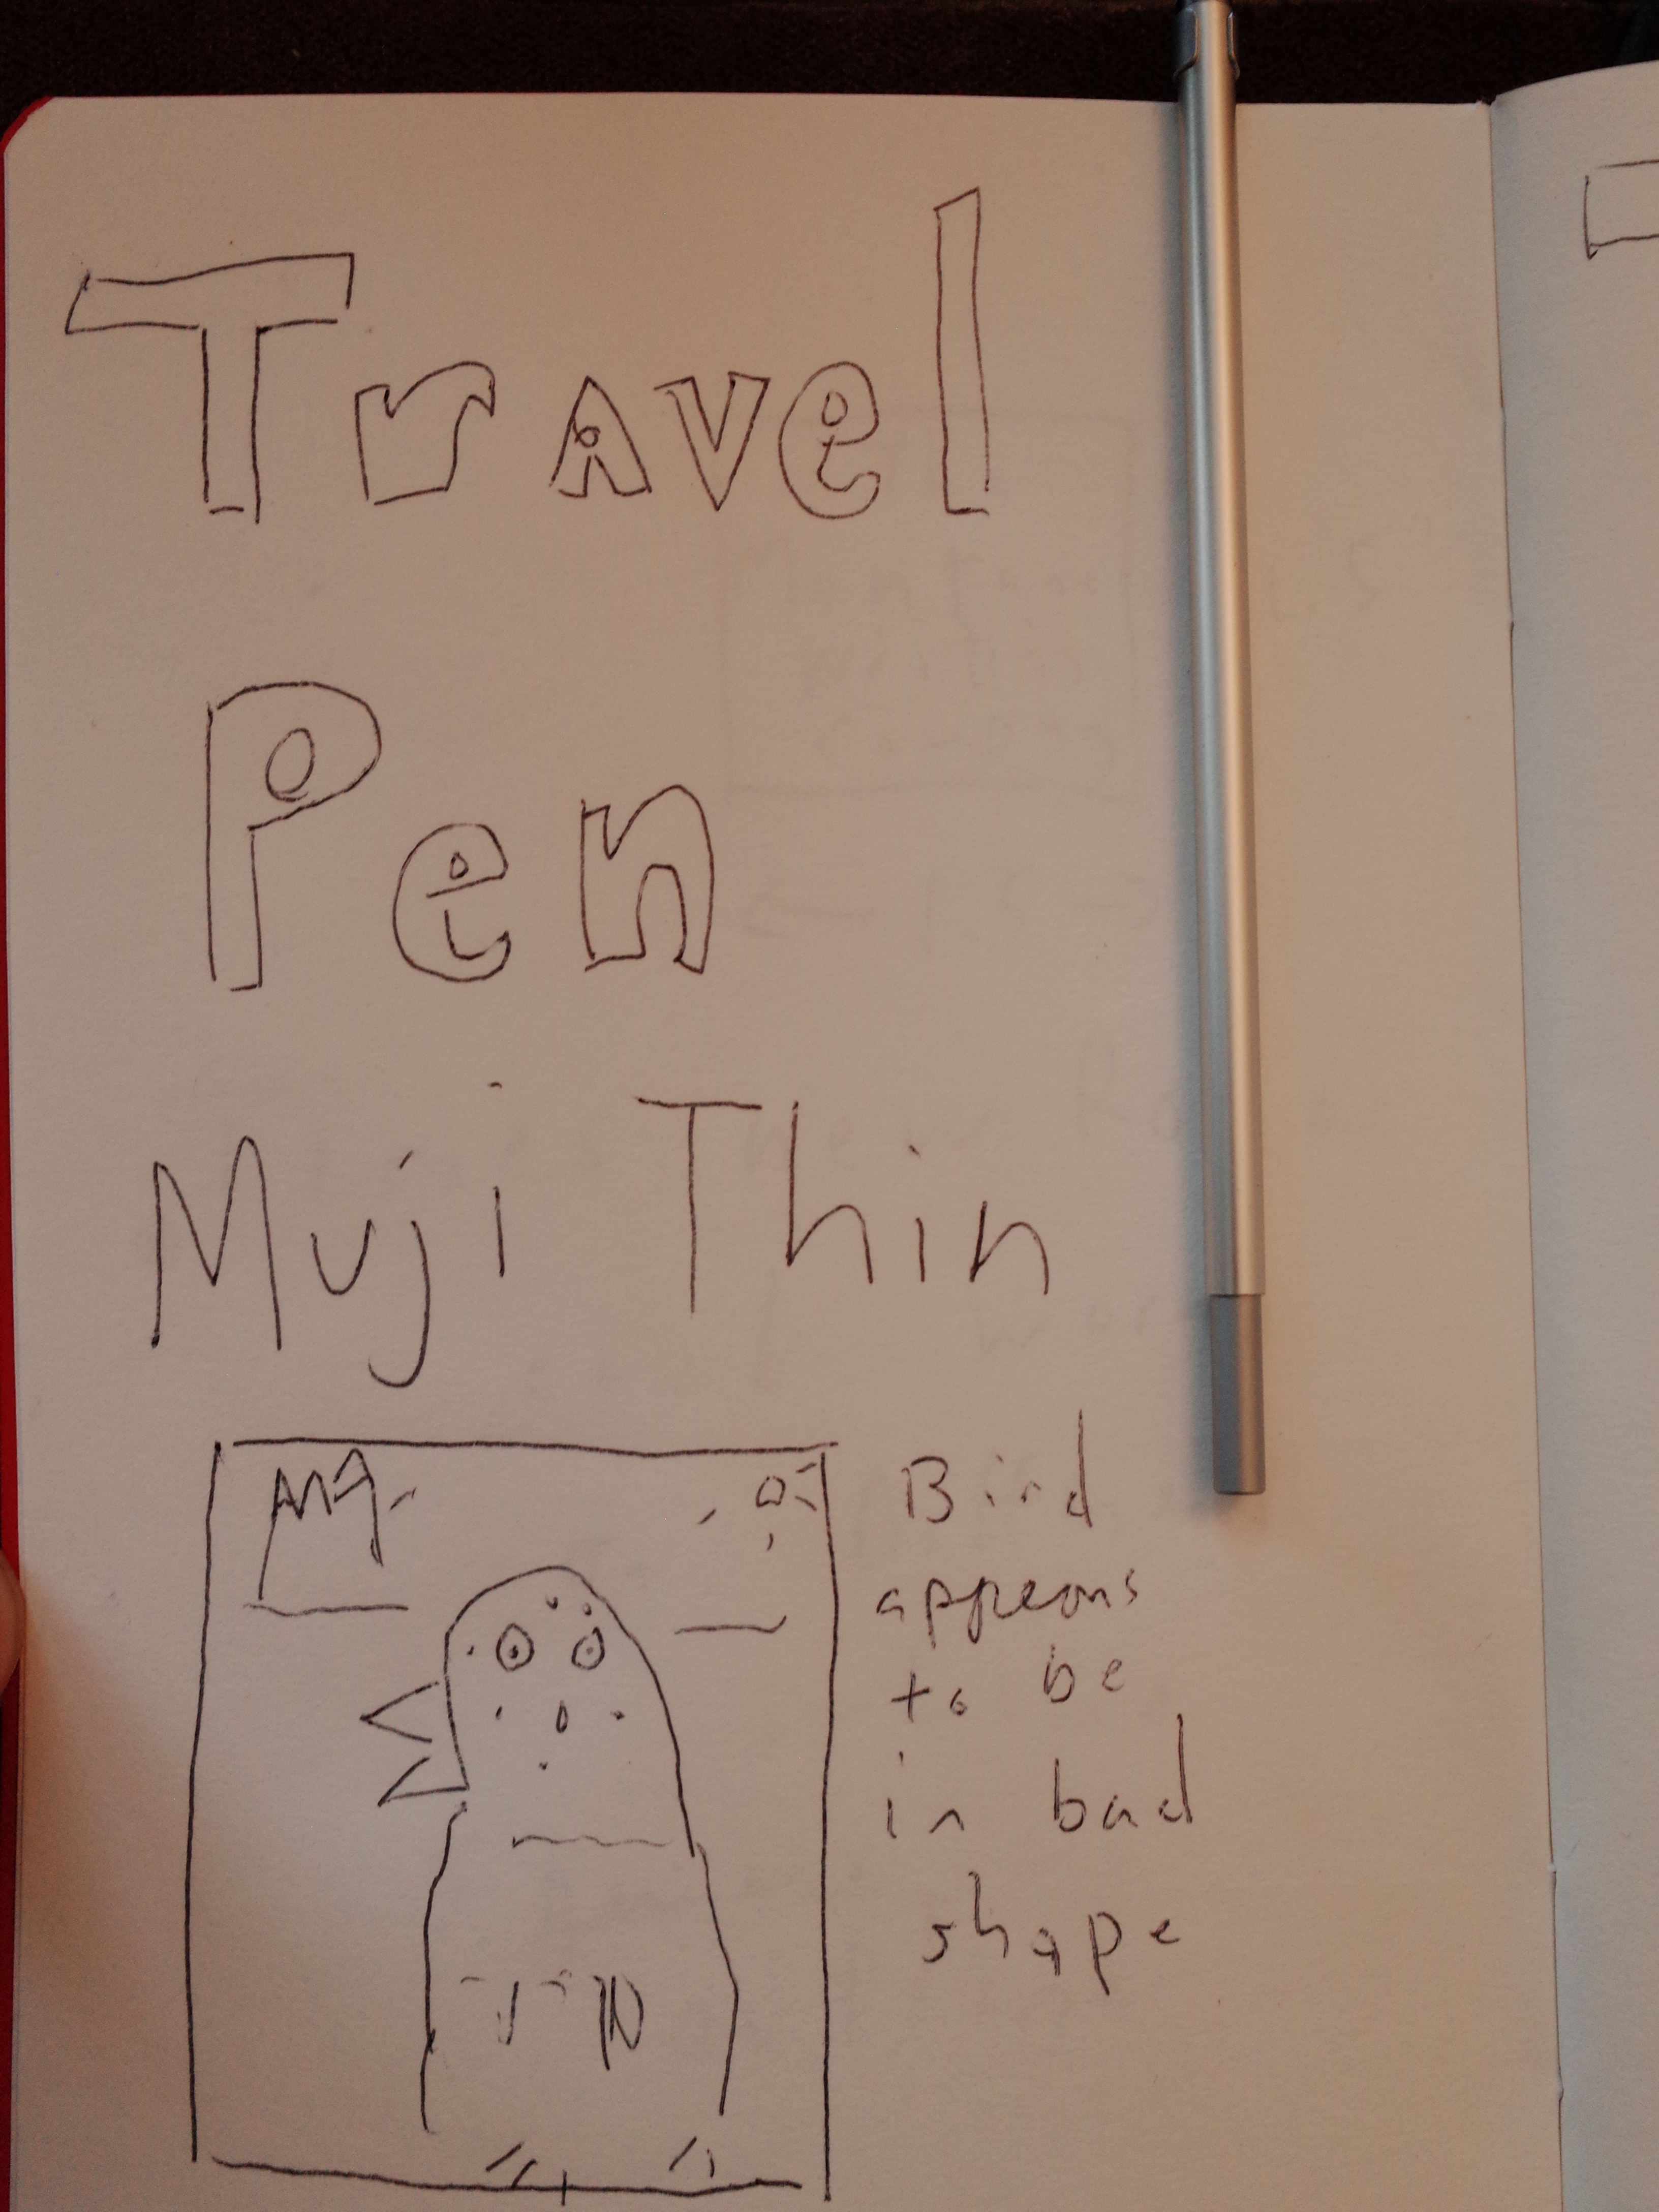 Travel
Pen
Muji Thin
Bird
appears
to be
in bad
shape